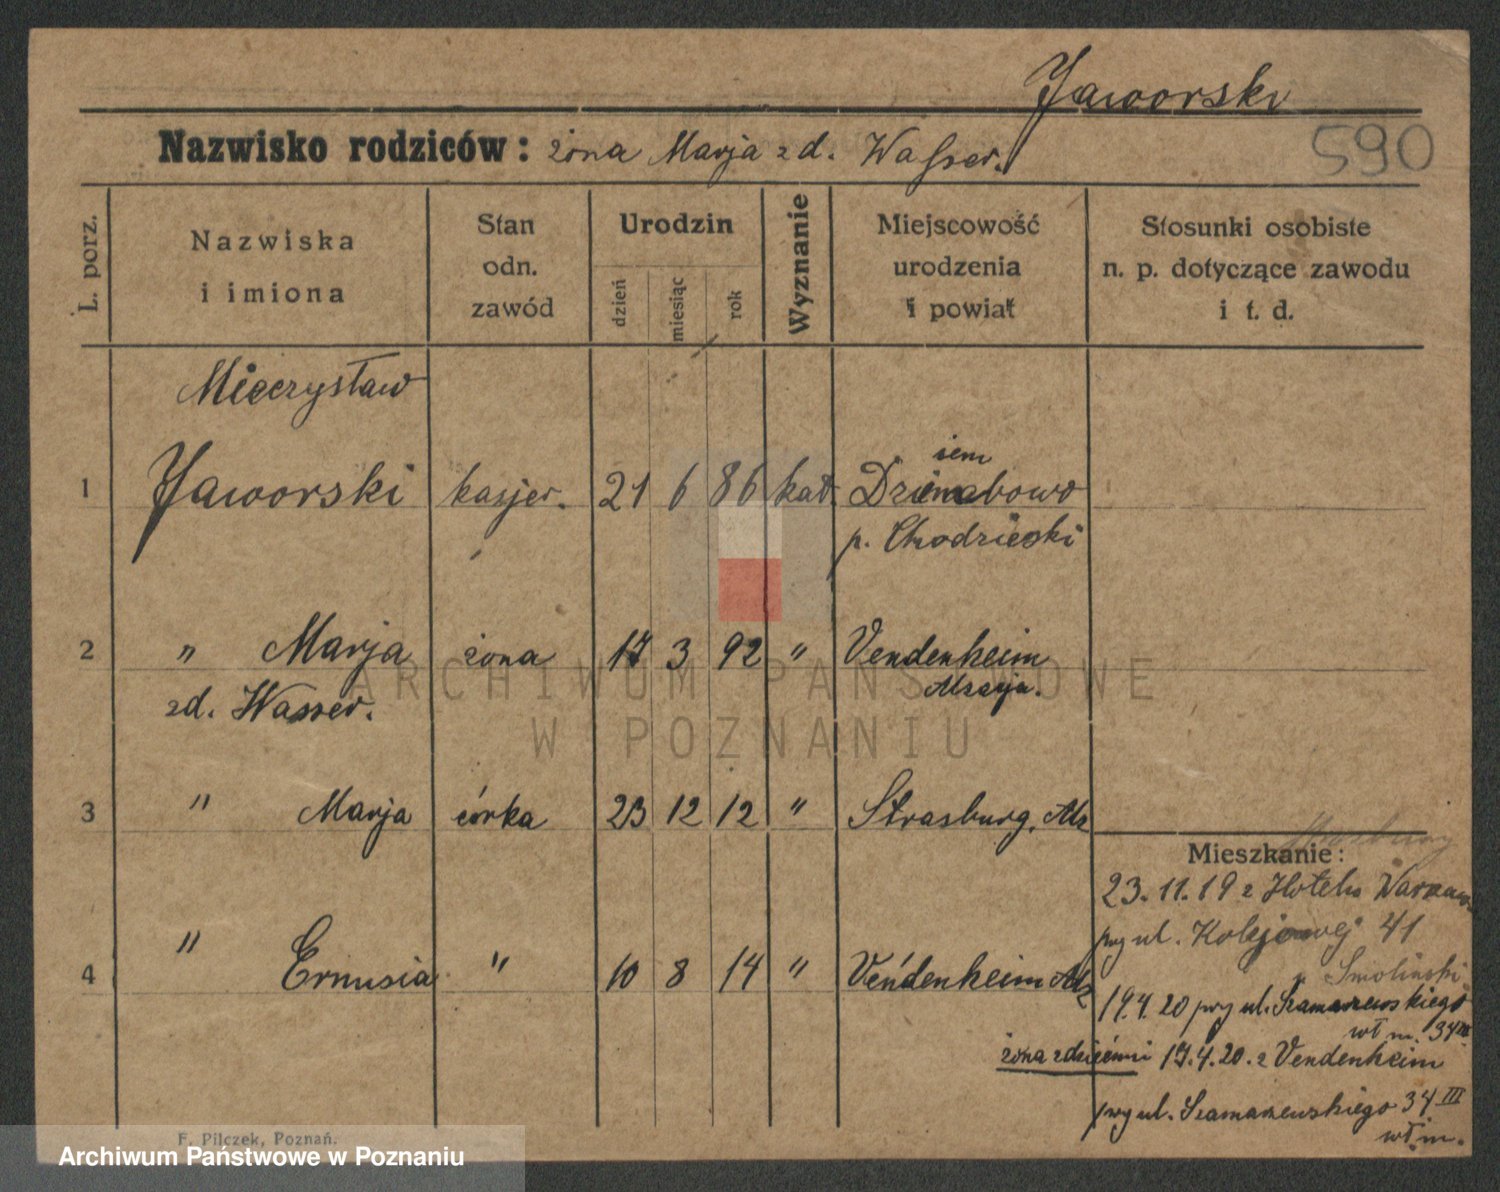 Jaworski
590
Nazwisko rodziców: żona Marja zd. Wasser.
L. porz.
Nazwiska i imiona
Stan odn. zawód
Urodzin
dzień
miesiąc
rok
Wyznanie
Miejscowość urodzenia i powiat
Stosunki osobiste n. p. dotyczące zawodu i t. d.
Mieczysław
1 Jaworski kasjer. 21 6 86 kat. Dziembowo
iem
p. Chodzieski
2 " Marja żona 17 3 92 " Vendenheim
zd. Wasser. Alzacja.
3 " Marja córka 23 12 12 " Strasburg. Alz
4 " Ernusia " 10 8 14 " Vendenheim Alz
Mieszkanie:
23.11.19 z Hotelu Warszaw.
przy ul. Kolejowej 41
u Smoliński
19.4.20 przy ul. Szamarzewskiego
wł m. 34 III
żona z dziećmi 17.4.20. z Vendenheim
przy ul. Szamarzewskiego 34 III
wł. m.
F. Pilczek, Poznań.
ARCHIWUM PAŃSTWOWE
W POZNANIU
Archiwum Państwowe w Poznaniu